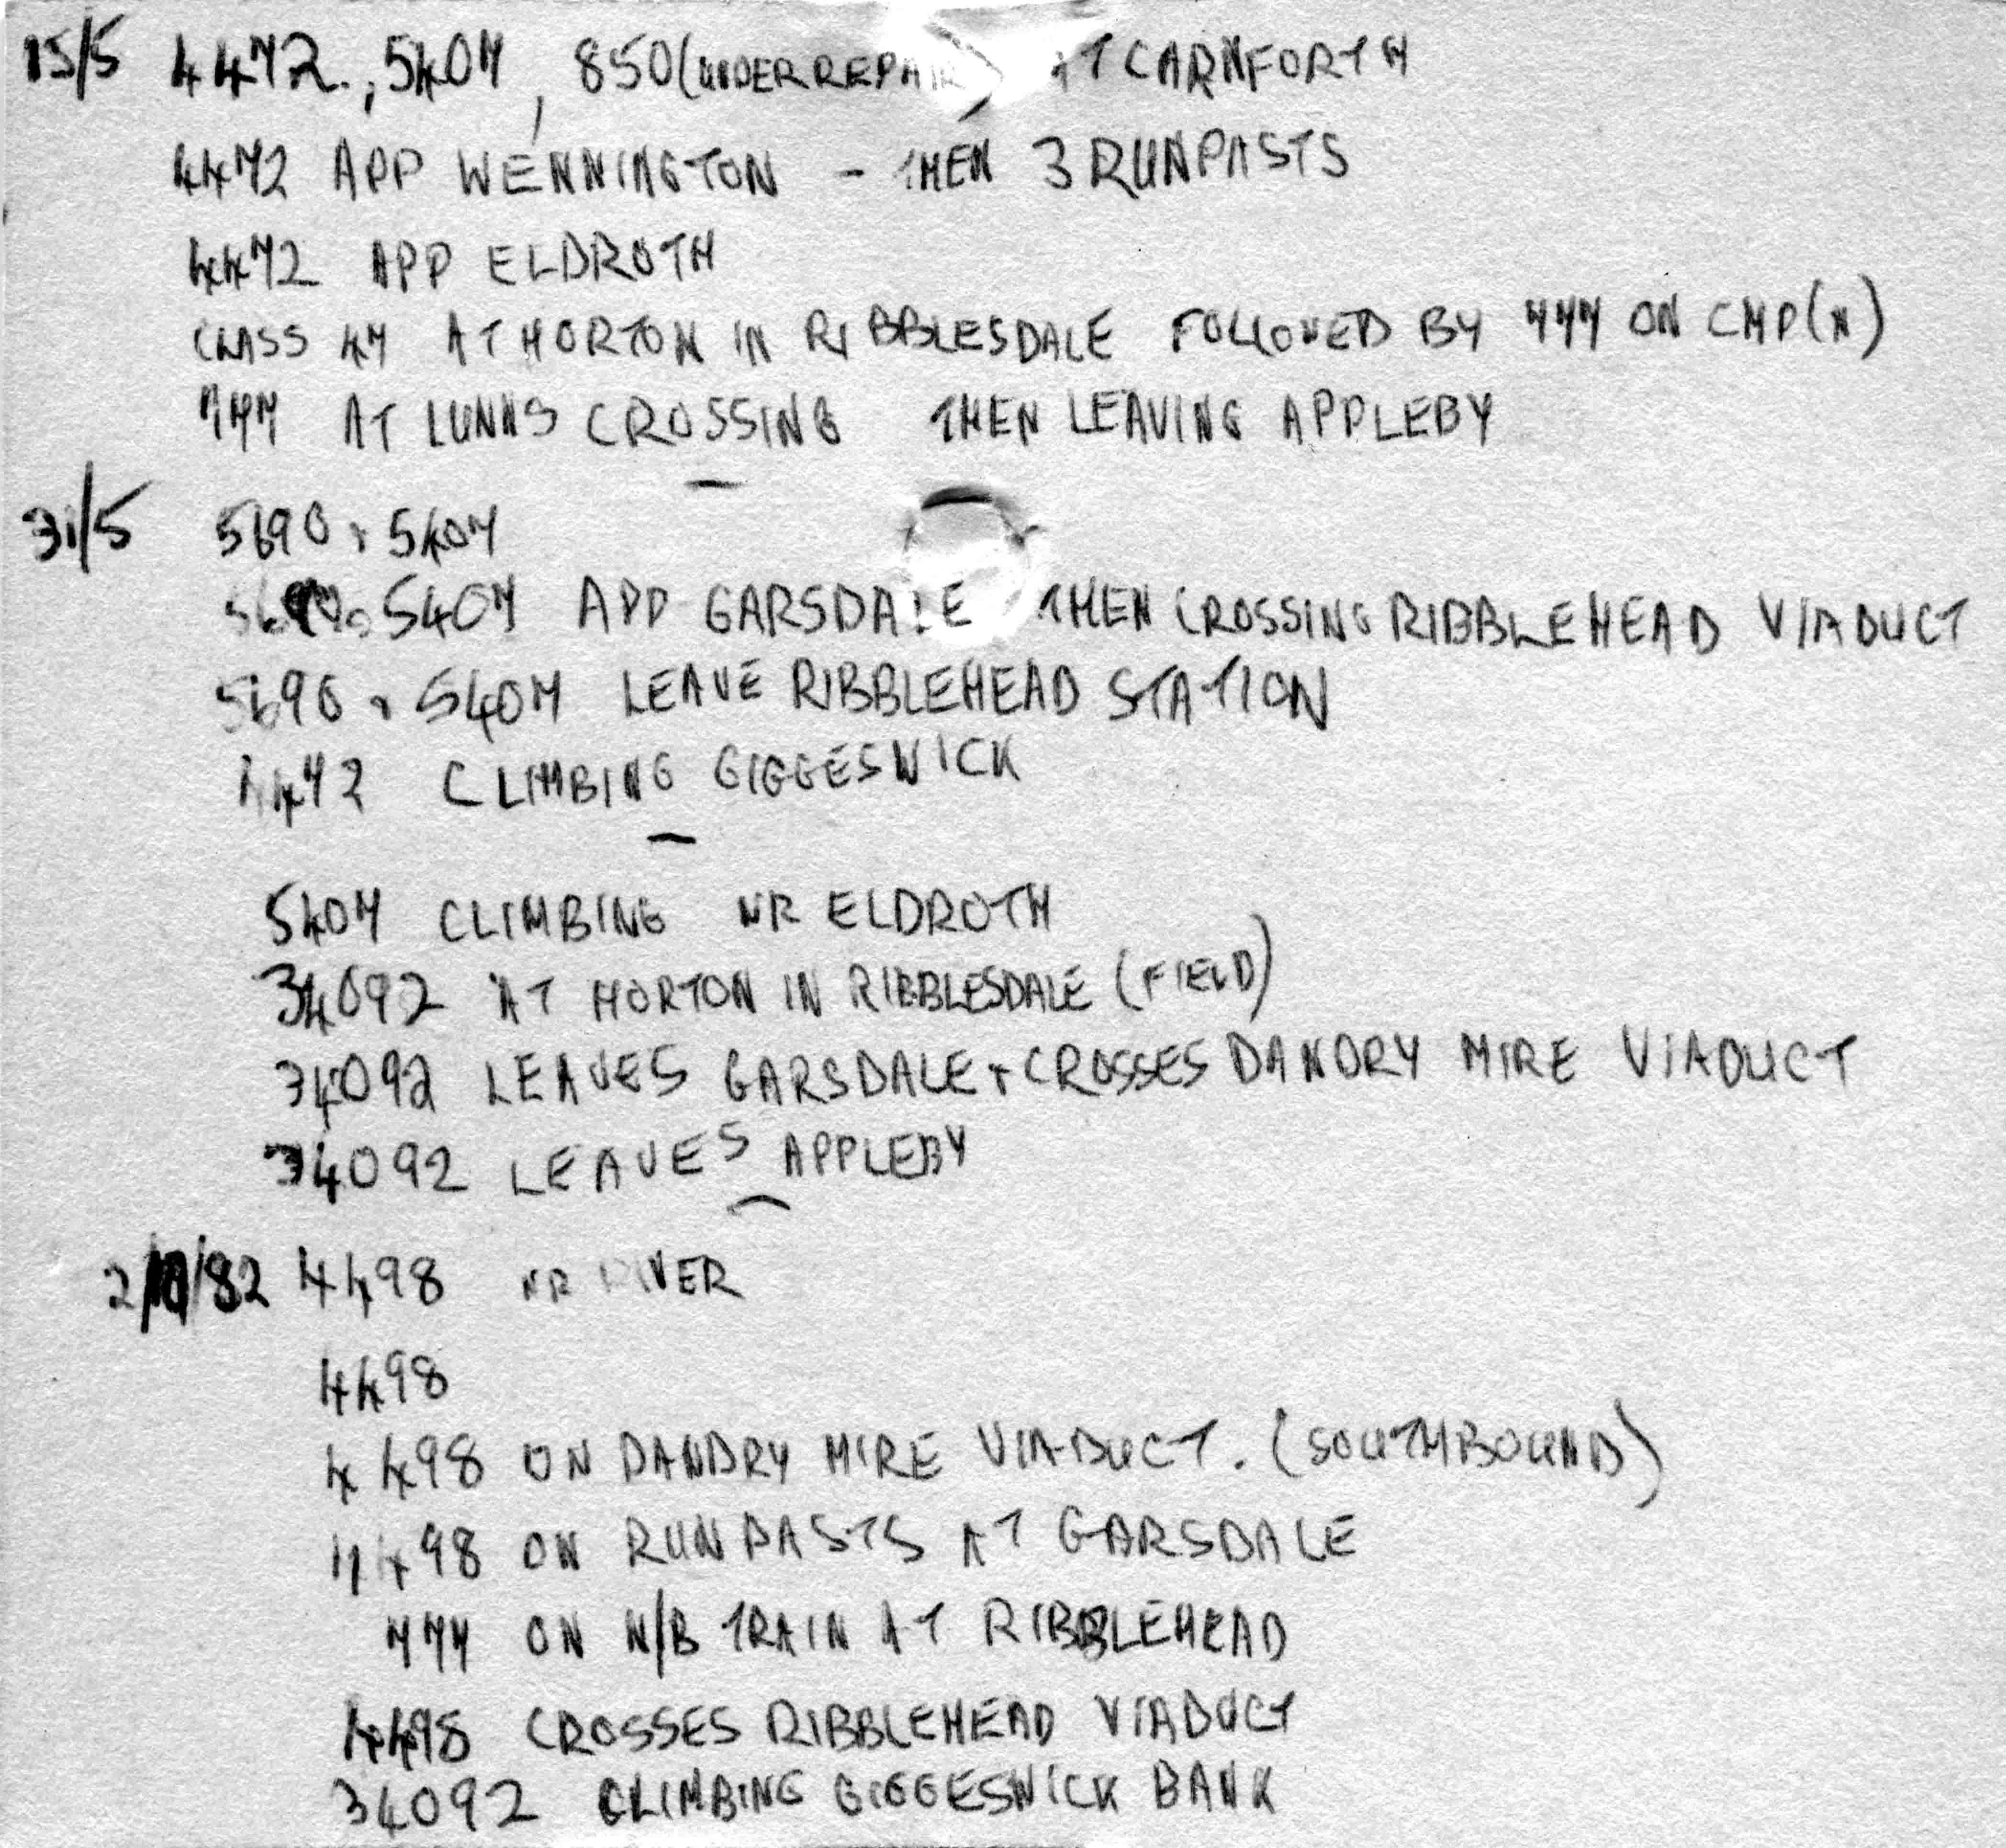 15/5 4472., 5407, 850 (UNDER REPAIR) AT CARNFORTH
4472 APP WENNINGTON - THEN 3 RUNPASTS
4472 APP ELDROTH
CLASS 47 AT HORTON IN RIBBLESDALE FOLLOWED BY 777 ON CMP(N)
777 AT LUNNS CROSSING THEN LEAVING APPLEBY
31/5 5690 + 5407
5690 + 5407 APP GARSDALE THEN CROSSING RIBBLEHEAD VIADUCT
5690 + 5407 LEAVE RIBBLEHEAD STATION
4472 CLIMBING GIGGESWICK
5407 CLIMBING NR ELDROTH
34092 AT HORTON IN RIBBLESDALE (FIELD)
34092 LEAVES GARSDALE + CROSSES DANDRY MIRE VIADUCT
34092 LEAVES APPLEBY
4498 NR
4498
4498 ON DANDRY MIRE VIADUCT. (SOUTHBOUND)
4498 ON RUNPASTS AT GARSDALE
777 ON N/B TRAIN AT RIBBLEHEAD
4498 CROSSES RIBBLEHEAD VIADUCT
34092 CLIMBING GIGGESWICK BANK